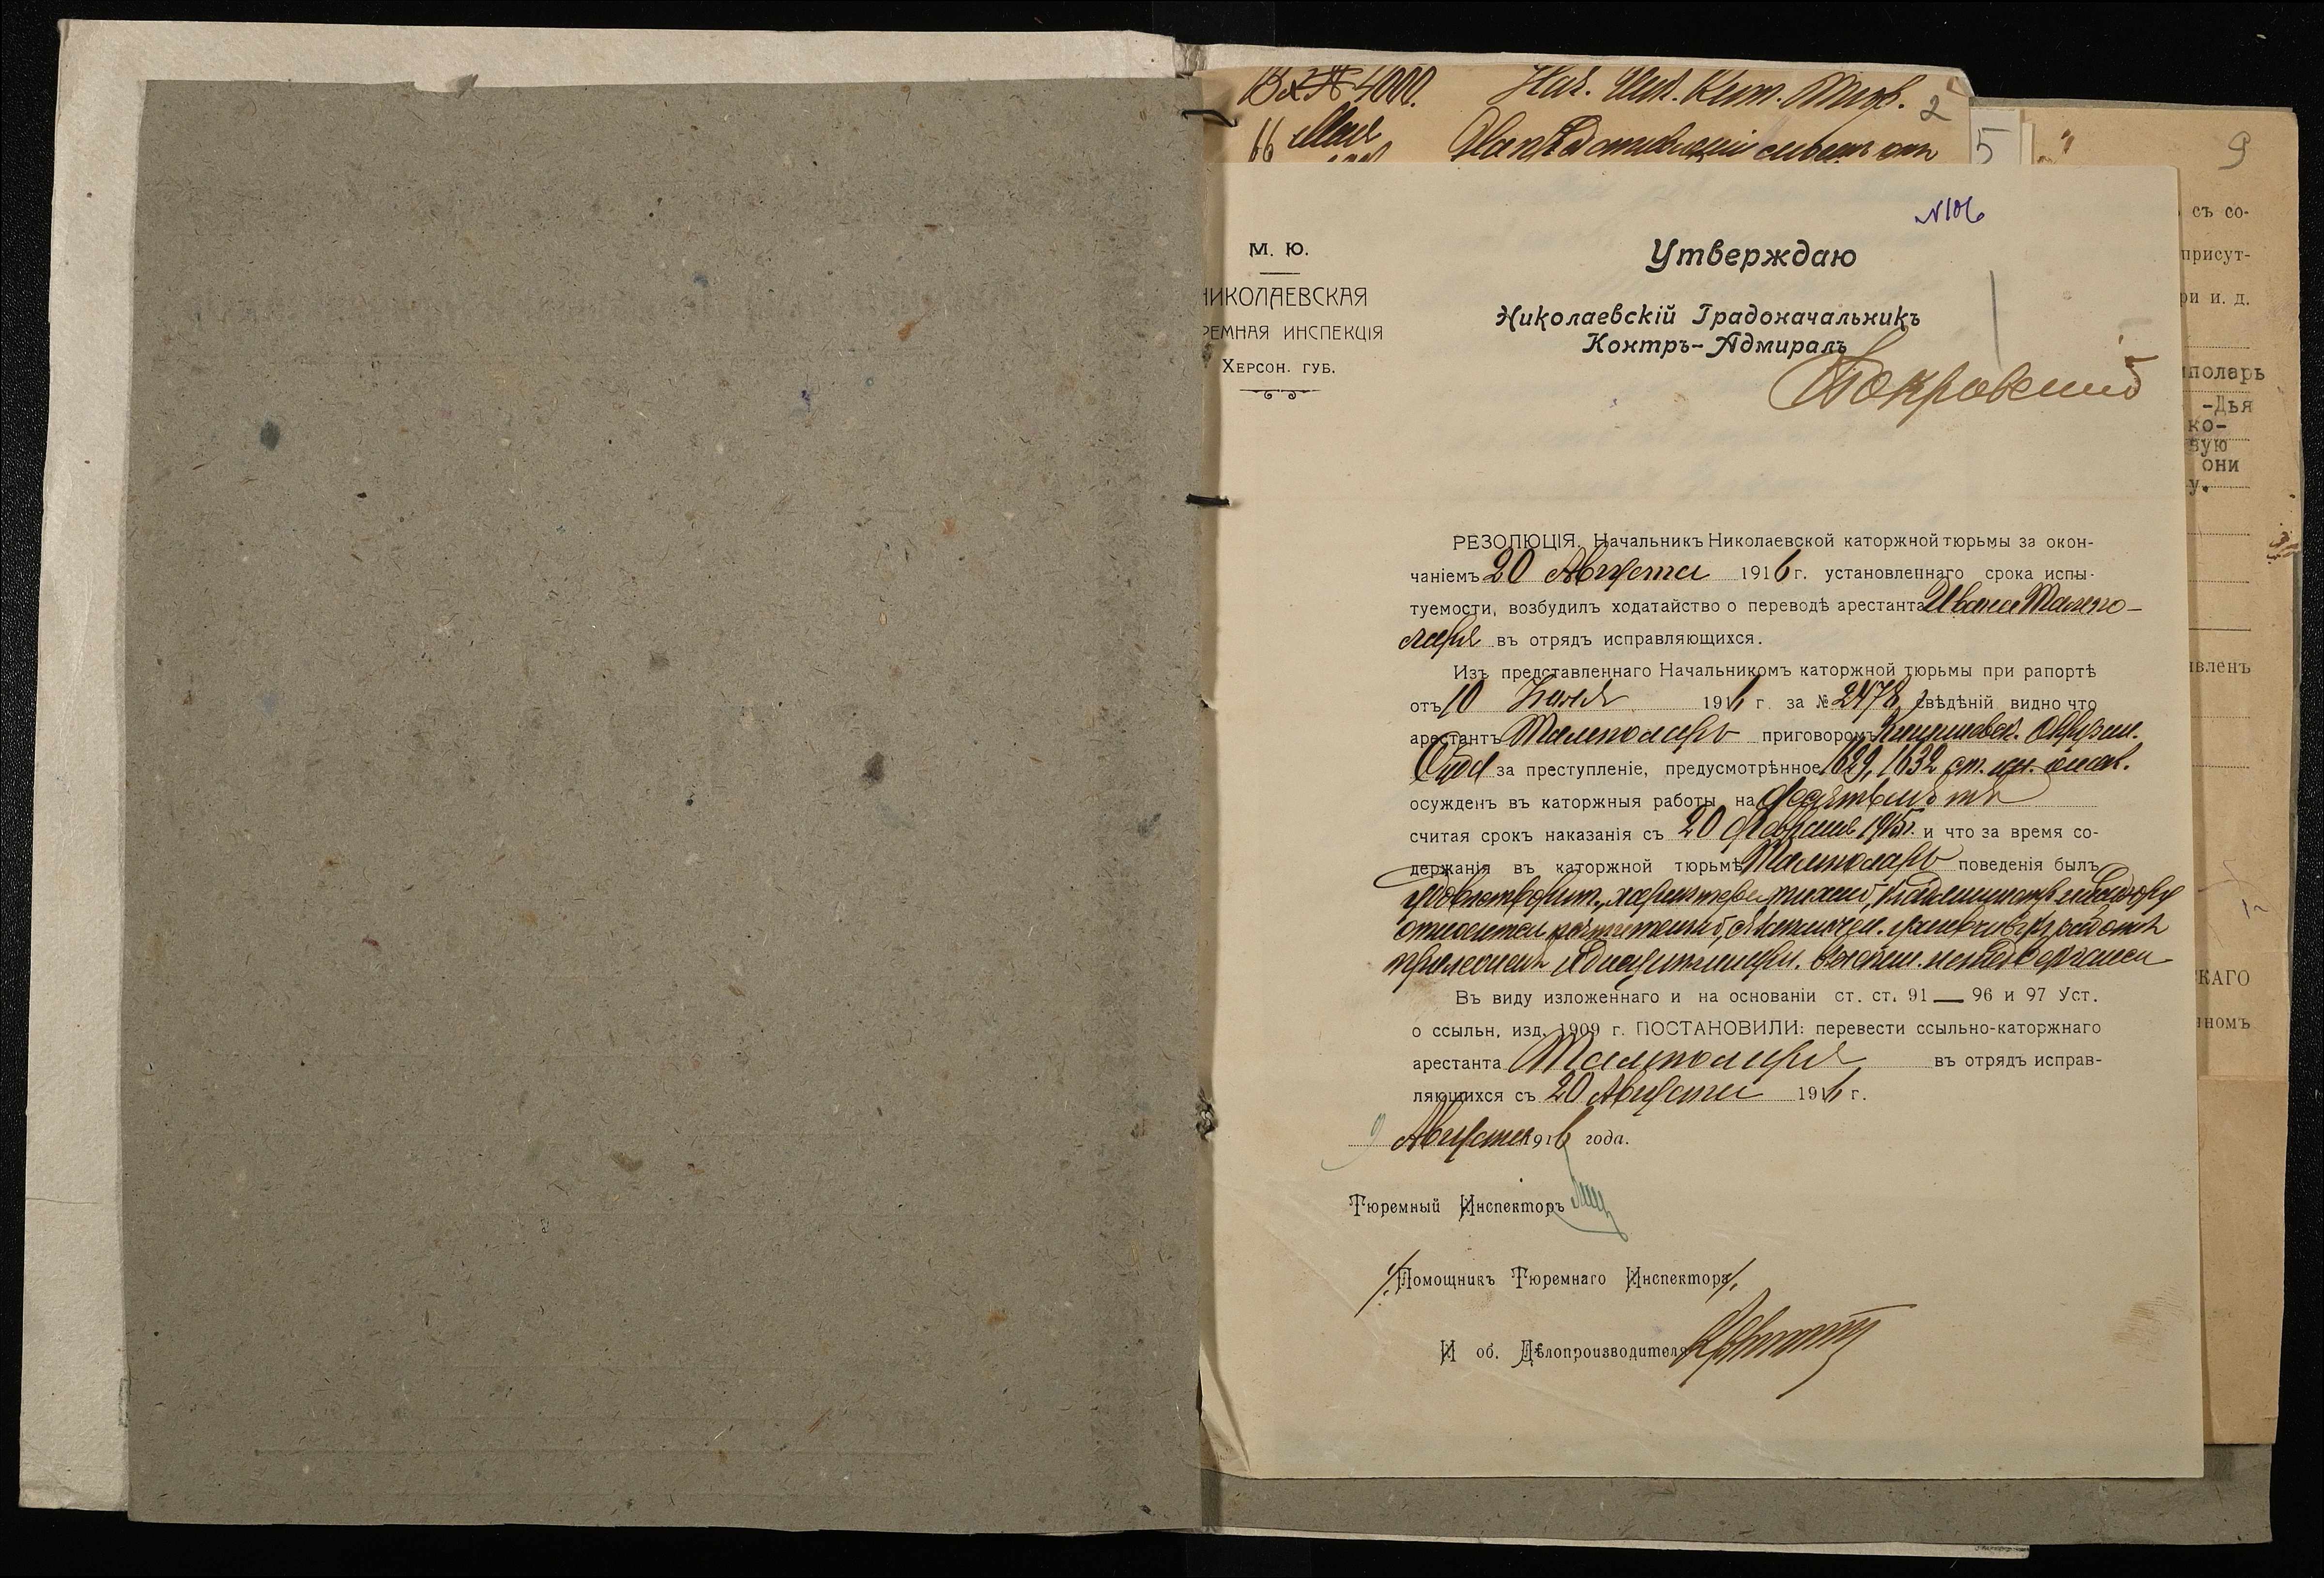 4000. Нач. Ник. Кат. Тюр. 2
66 Мая
5
9
№106
М. Ю.
НИКОЛАЕВСКАЯ
РЕМНАЯ ИНСПЕКЦІЯ
Херсон. губ.
Утверждаю
Николаевскій Градоначальникъ
Контръ-Адмиралъ
Покровскій
РЕЗОЛЮЦІЯ. Начальникъ Николаевской каторжной тюрьмы за окон-
чаніемъ 20 Августа 1916 г. установленнаго срока испы-
туемости, возбудилъ ходатайство о переводѣ арестанта Ивана Тальпо-
ларя въ отрядъ исправляющихся.
Изъ представленнаго Начальникомъ каторжной тюрьмы при рапортѣ
отъ 10 1916 г. за № 2478 свѣдѣній видно что
арестантъ Тальполарь приговоромъ Кишиневск. Окружн.
Суда за преступленіе, предусмотрѣнное 1629, 1632 ст. ул. о нак.
осужденъ въ каторжныя работы на
считая срокъ наказанія съ 20 Февраля 1915 г. и что за время со-
держанія въ каторжной тюрьмѣ Тальполарь поведенія былъ
удовлетворит., характера тихаго, къ администр. и надзору
относится почтительно, къ работѣ
прилеженъ
Въ виду изложеннаго и на основаніи ст. ст. 91 — 96 и 97 Уст.
о ссыльн, изд. 1909 г. ПОСТАНОВИЛИ: перевести ссыльно-каторжнаго
арестанта Тальполаря въ отрядъ исправ-
ляющихся съ 20 Августа 1916 г.
9 Августа 1916 года.
Тюремный Инспекторъ
Помощникъ Тюремнаго Инспектора
И об. Дѣлопроизводителя
съ со-
присут-
ри и. д.
полярь
-Дья
ко-
вую
они
у.
вленъ
СКАГО
номъ